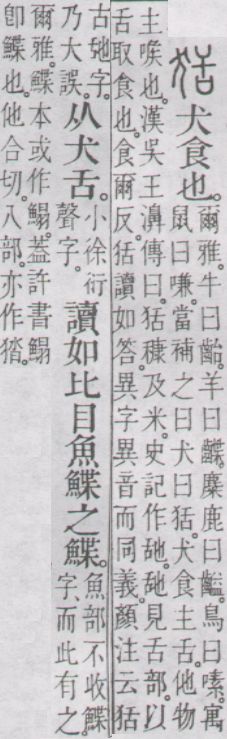 狧
犬食也。
爾雅。牛曰齝。羊曰齥。麋鹿曰齸。鳥曰嗉。寓
鼠曰嗛。當補之曰犬曰狧。犬食主舌。他物
主喙也。漢吳王濞傳曰。狧穅及米。史記作𦧇。𦧇見舌部。以
舌取食也。食爾反。狧讀如答。異字異音而同義。顏注云狧
古𦧇字。
乃大誤。
从犬舌。
小徐衍
聲字。
讀如比目魚鰈之鰈。
魚部不收鰈
字、而此有之。
爾雅。鰈本或作鰨。葢許書鰨
卽鰈也。他合切。八部。亦作